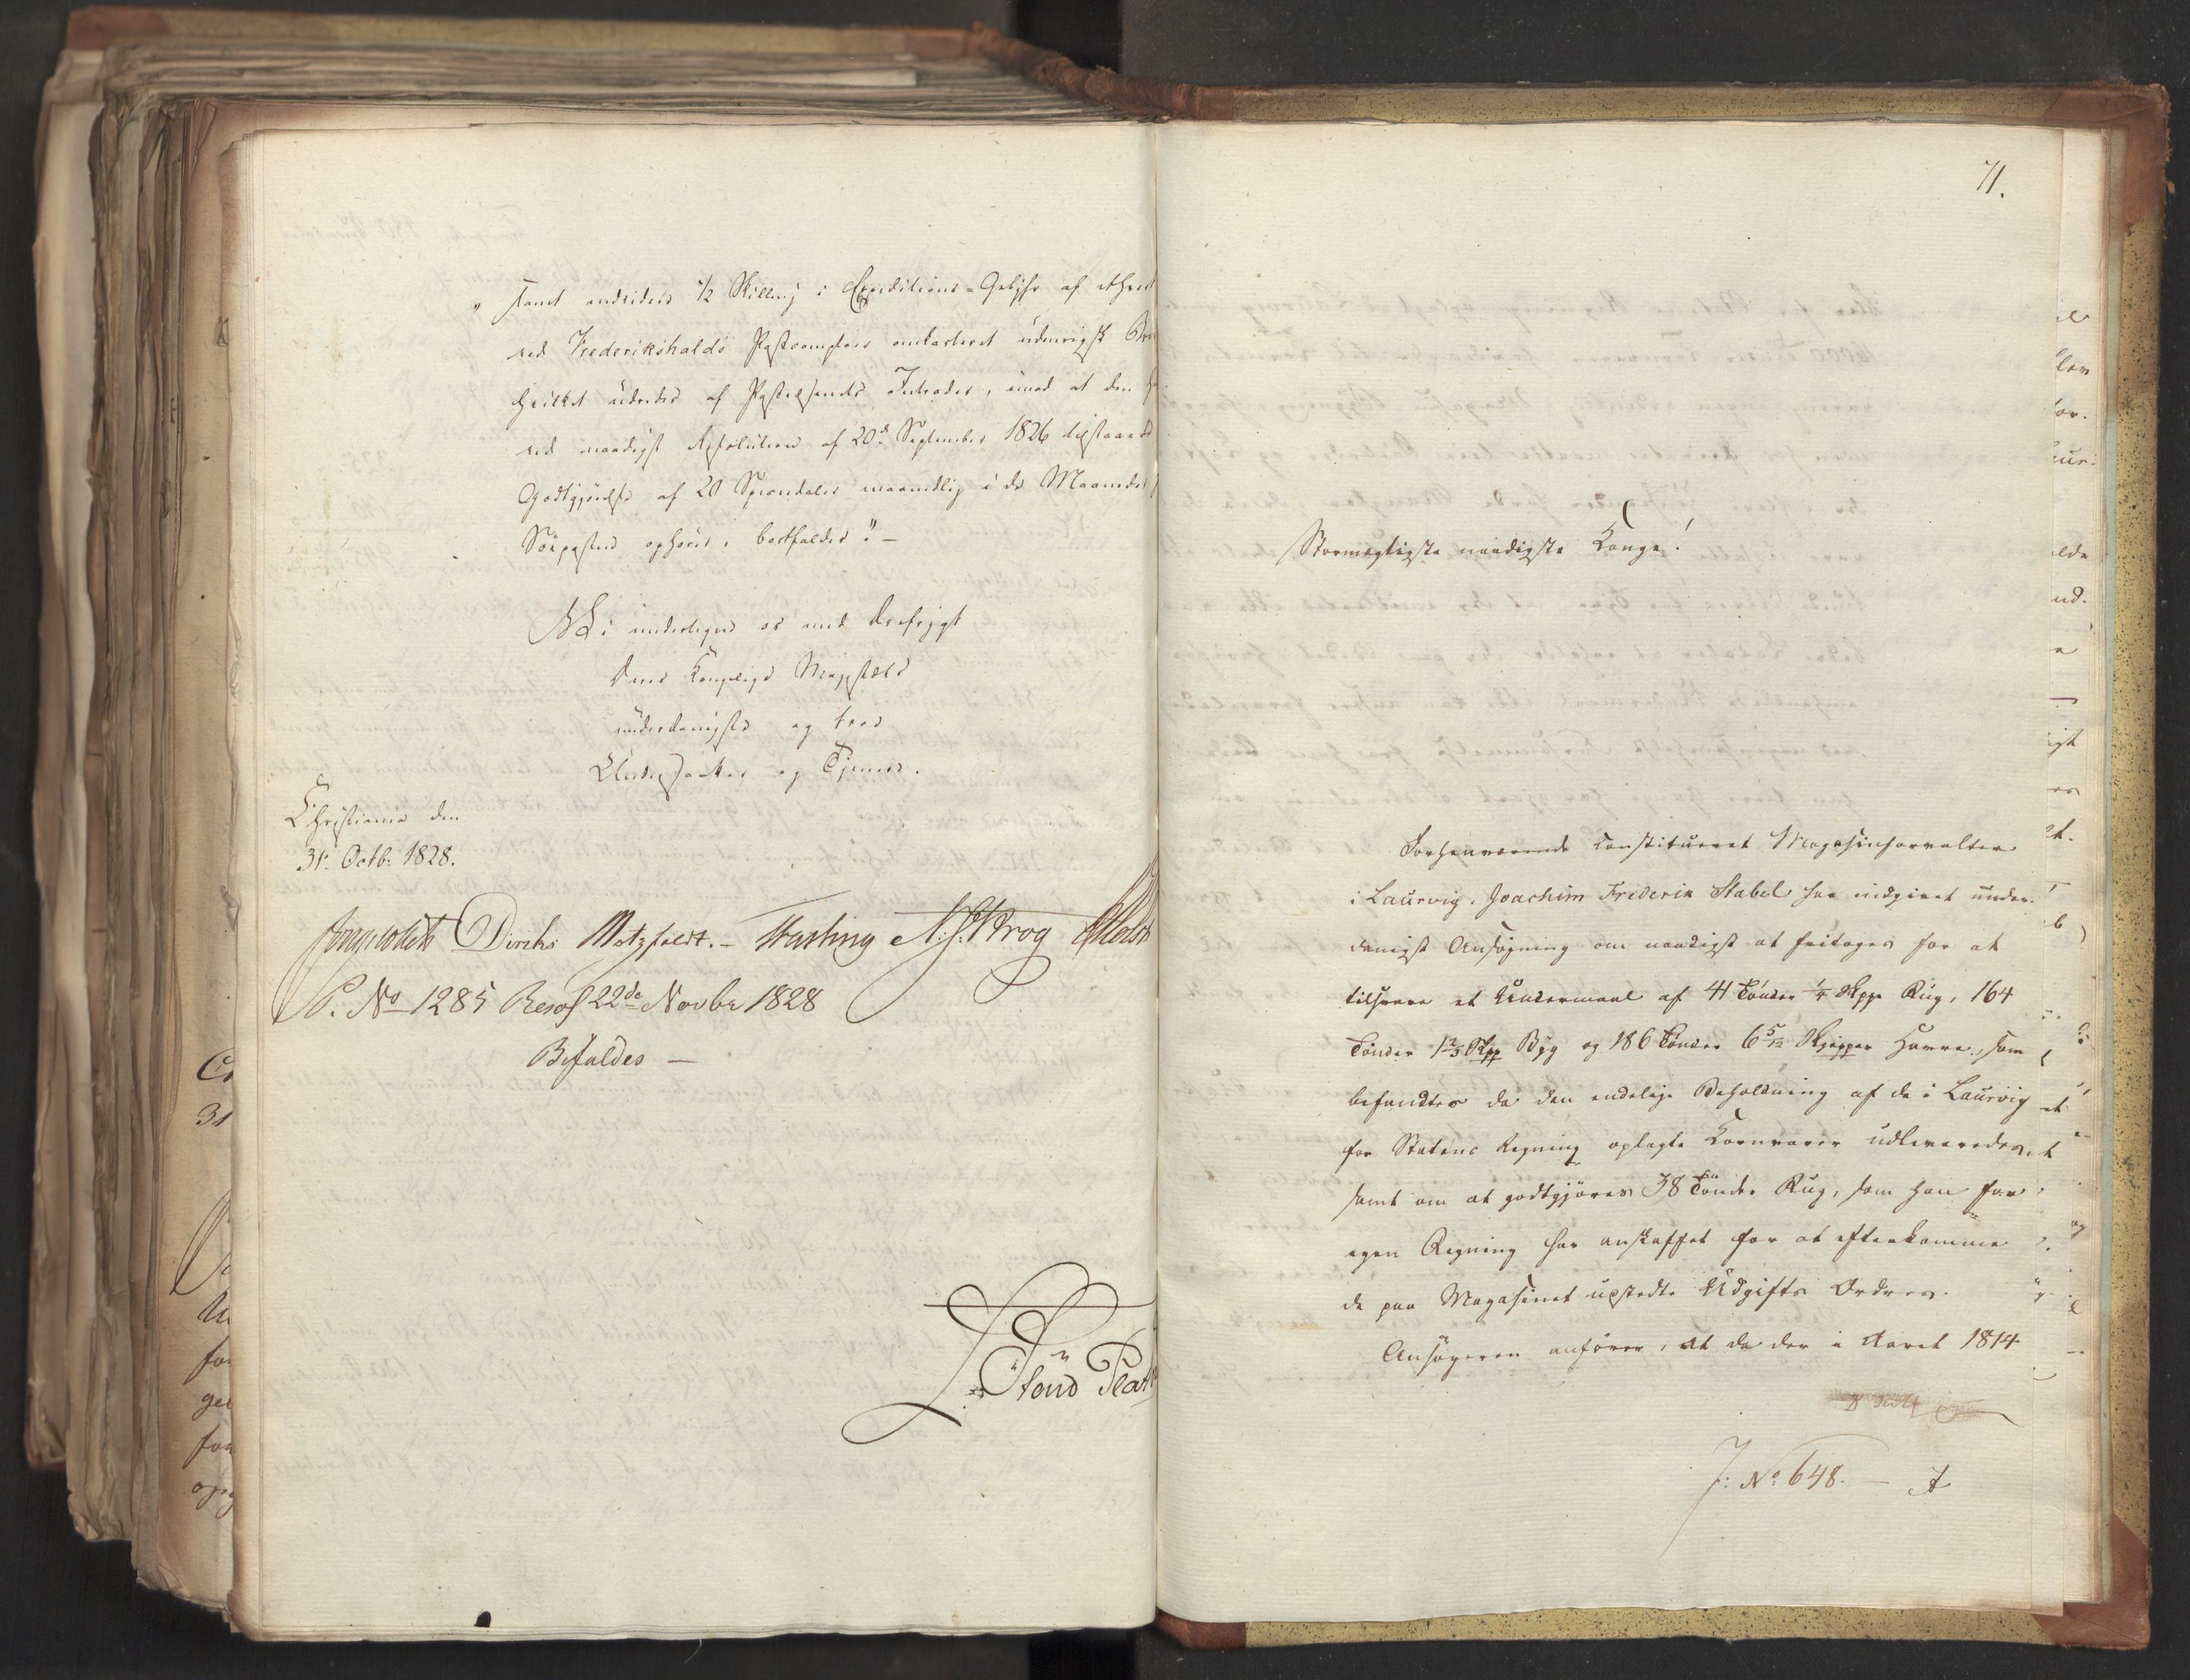 "samt endvidere 1/2 Skilling i Expeditions-Gebyhr af ethvert
ved Frederikshalds Postcomptoir omkarteret udenrigsk Brev
hvilket udredes af Postvæsenets Intrader, imod at den
ved naadigst Resolution af 20de September 1826 tilstaaede
Godtgjörelse af 20 Speciedaler maanedlig i de Maaneder
Söeposten ophörer, bortfalder." —
Vi undertegne os med Ærefrygt
Deres Kongelige Majestæts
underdanigste og troe
Undersaatter og Tjenere.
Christiania den
31te Octb: 1828.
Diriks Motzfeldt. — Fasting N. J. Krog Holst
P. No 1285 Resol 22de Novbr 1828
Bifaldes —
71.
Stormægtigste naadigste Konge!
Forhenværende constitueret Magasinforvalter
i Laurvig, Joachim Friderik Stabel har indgivet under-
danigst Ansøgning om naadigst at fritages for at
tilsvare et Undermaal af 41 Tönder 1/4 Skpp Rug, 164
Tönder 1 2/3 Skpp Byg og 186 Tönder 6 5/12 Skjepper Havre, som
befandtes da den endelige Beholdning af de i Laurvig
for Statens Regning oplagte Kornvarer udleveredes,
samt om at godtgjöres 38 Tönder Rug, som han for
egen Regning har anskaffet for at efterkomme
de paa Magasinet udstedte Udgifts Ordres.
Ansögeren anförer, at da der i Aaret 1814
J: No 648. —